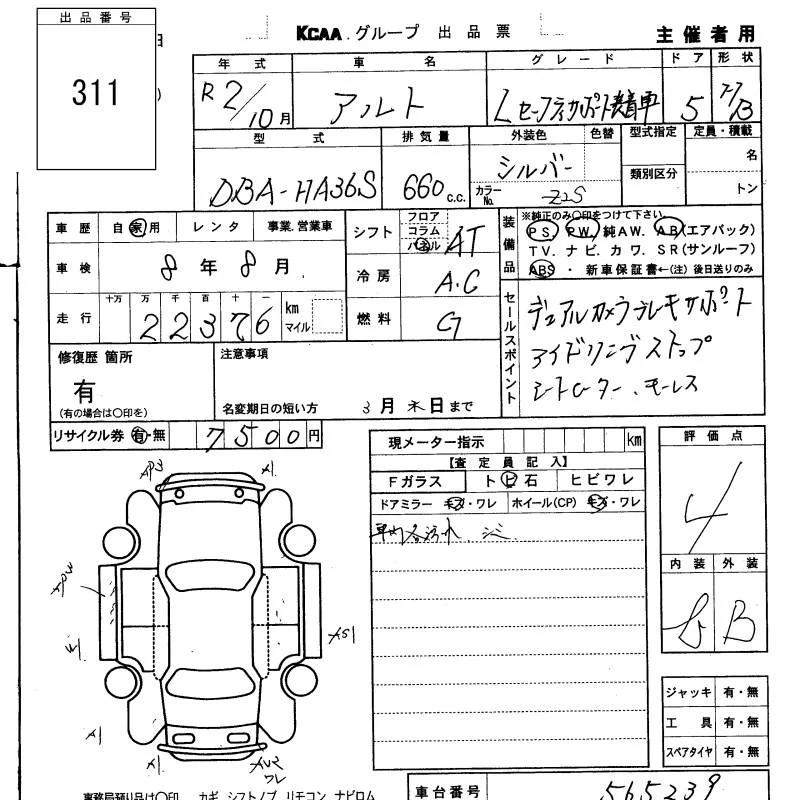 出品番号
311
KCAA.グループ 出品票
主催者用
年式 車名 グレード ドア 形状
R2/10月 アルト Lセーフティサポート装着車 5 F/B
型式 排気量 外装色 色替 型式指定 定員・積載
DBA-HA36S 660c.c. シルバー 名
カラーNo. Z2S 類別区分 トン
車歴 自家用 レンタ 事業.営業車
シフト フロア コラム パネル AT
装備品 ※純正のみ〇印をつけて下さい
PS. PW. 純AW. AB(エアバック)
TV. ナビ. カワ. SR(サンルーフ)
ABS ・ 新車保証書←(注)後日送りのみ
車検 8年8月
冷房 A.C
走行 十万 万 千 百 十 一
22376 km マイル
燃料 G
セールスポイント
デュアルカメラブレーキサポート
アイドリングストップ
シートヒーター.キーレス
修復歴 箇所
有
(有の場合は〇印を)
注意事項
名変期日の短い方 3月末日まで
リサイクル券 有・無 7500円
現メーター指示 km
【査定員記入】
Fガラス トビ石 ヒビワレ
ドアミラー キズ・ワレ ホイール(CP) キズ・ワレ
車内各汚れ.シミ
評価点
4
内装 外装
B
ジャッキ 有・無
工具 有・無
スペアタイヤ 有・無
AP3 A1
APW
AS1
A1 A1
事務局預り品は〇印 カギ シフトノブ リモコン ナビロム
車台番号 565239